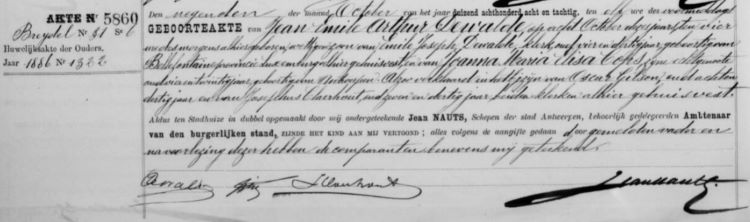 AKTE Nr 5860
Breydel Nr 31 S 6
Huwelijksakte der Ouders.
Jaar 1886 Nr 1322
Den negenden der maand October van het jaar duizend achthonderd acht en tachtig, ten elf ure des voormiddags
GEBOORTEAKTE van Jean Emile Arthur Dewalde, op acht October dezes jaars ten vier
ure des morgens alhier geboren, zoon van Emile Joseph Dewalde, klerk, oud vier en dertig jaar, geboortig van
provincie Luxemburg, alhier gehuisvest en van Joanna Maria Elisa Cops, zijne echtgenoote
oud vier en twintig jaar, geboortig van Antwerpen. Aldus verklaard in het bijzijn van Oscar Gilson, oud acht en
dertig jaar en van Josephus Claerhout, oud zeven en dertig jaar, beiden klerken, alhier gehuisvest.
Aldus ten Stadhuize in dubbel opgemaakt door mij ondergeteekende Jean NAUTS, Schepen der stad Antwerpen, behoorlijk gedelegeerden Ambtenaar
van den burgerlijken stand, ZIJNDE HET KIND AAN MIJ VERTOOND; alles volgens de aangifte gedaan door gemelden vader en
na voorlezing dezer hebben de comparanten benevens mij geteekend.